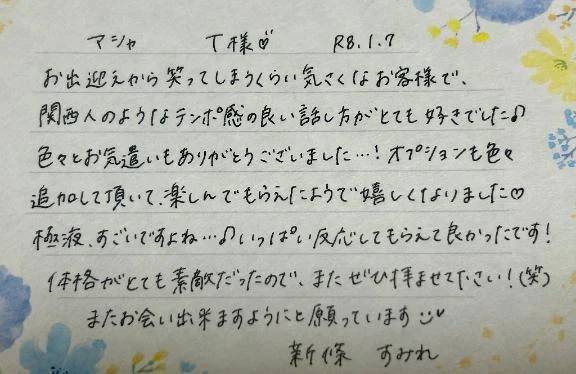 マシャ T様♡ R8.1.7
お出迎えから笑ってしまうくらい気さくなお客様で、
関西人のようなテンポ感の良い話し方がとても好きでした♪
色々とお気遣いもありがとうございました…!オプションも色々
追加して頂いて、楽しんでもらえたようで嬉しくなりました♡
極液、すごいですよね…♪いっぱい反応してもらえて良かったです!
体格がとても素敵だったので、またぜひ拝ませて下さい!(笑)
またお会い出来ますようにと願っています☺♥
新條 すみれ